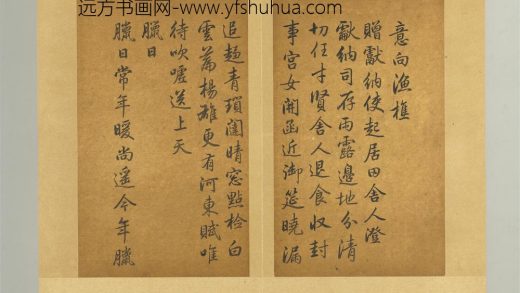 远方书画网-www.yfshuhua.com
意向漁樵
贈獻納使起居田舍人澄
獻納司存雨露邊地分清
切任才賢舍人退食收封
事宮女開函近御筵曉漏
追趨青瑣闥晴窓點檢白
雲篇楊雄更有河東賦唯
待吹噓送上天
臘日
臘日常年暖尚遥今年臘